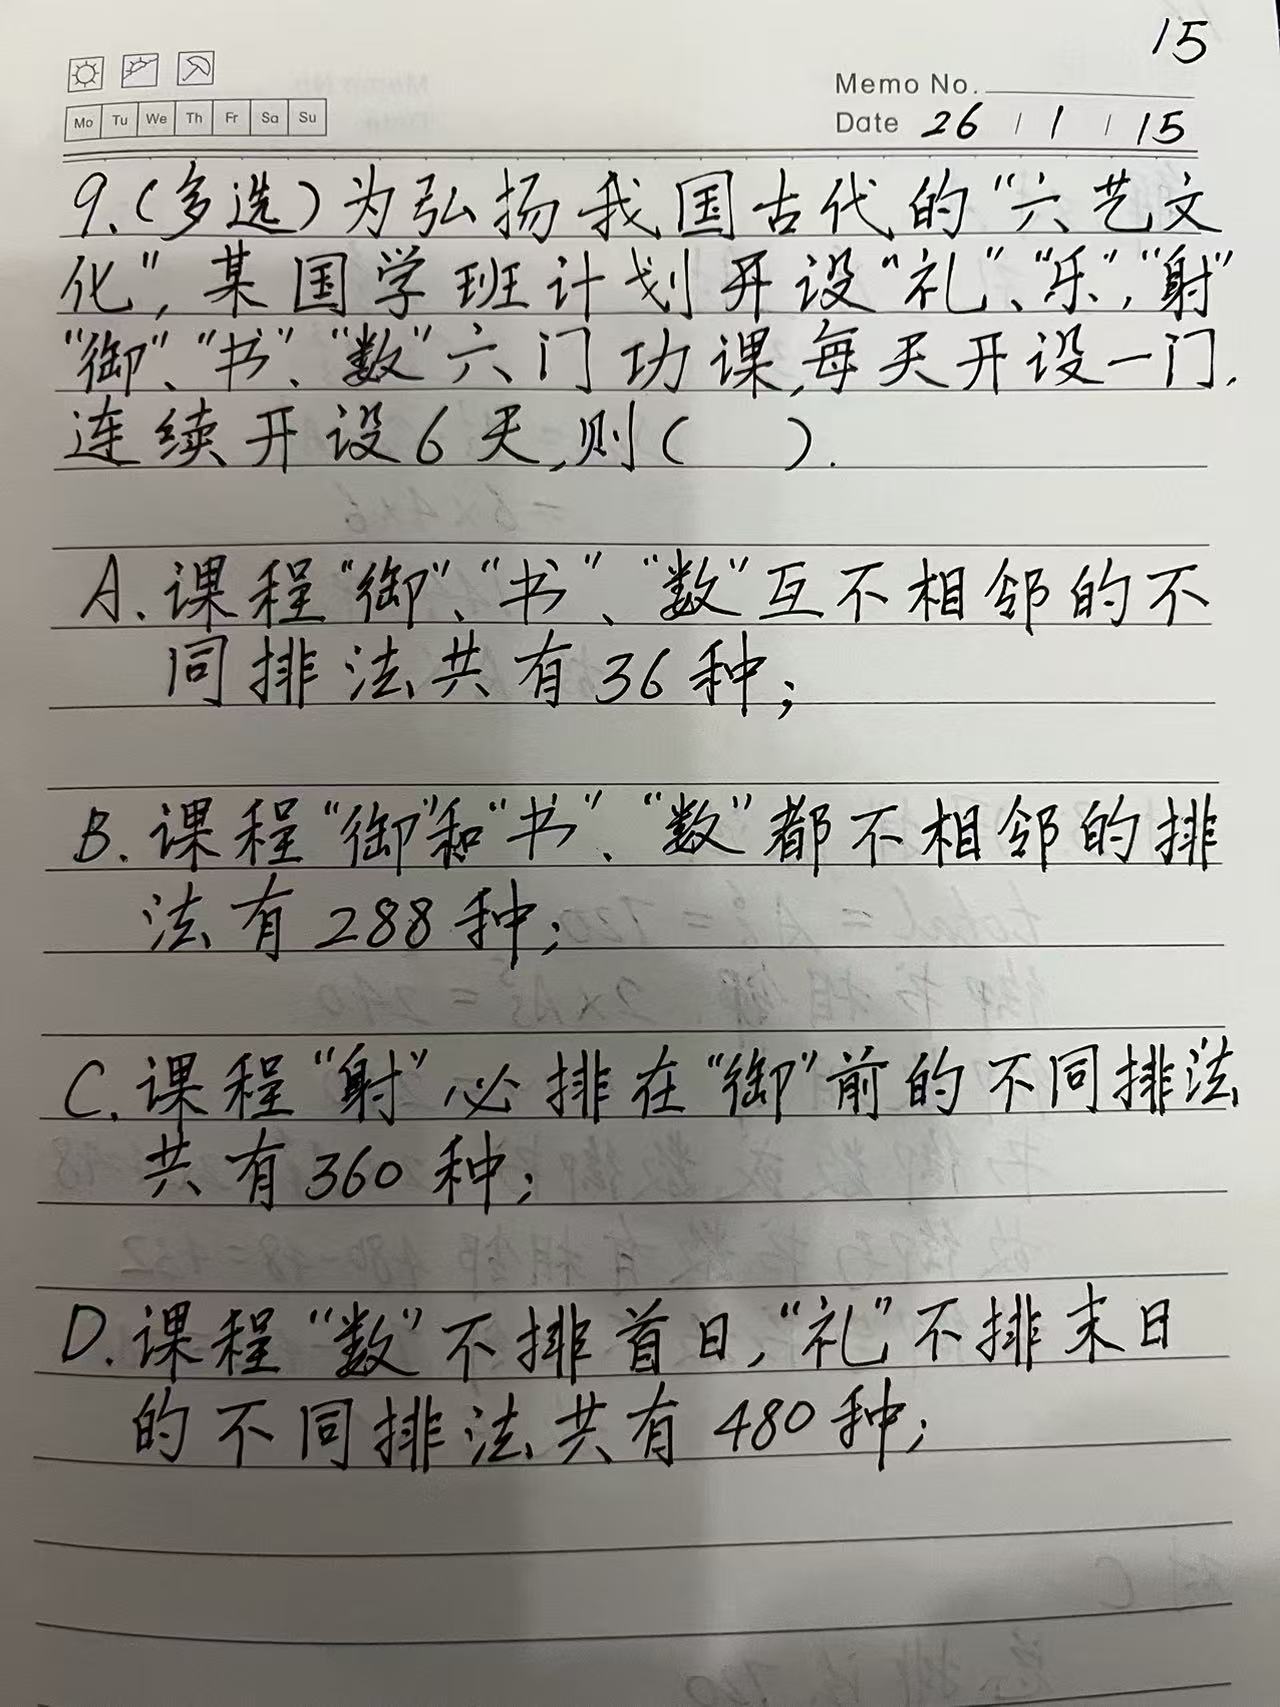 15
Memo No.
Mo Tu We Th Fr Sa Su
Date 26 / 1 / 15
9.(多选)为弘扬我国古代的“六艺文
化”,某国学班计划开设“礼”、“乐”,“射”
“御”、“书”、“数”六门功课,每天开设一门.
连续开设6天,则( ).
A.课程“御”、“书”、“数”互不相邻的不
同排法共有36种;
B.课程“御”和“书”、“数”都不相邻的排
法有288种;
C.课程“射”必排在“御”前的不同排法
共有360种;
D.课程“数”不排首日,“礼”不排末日
的不同排法共有480种;